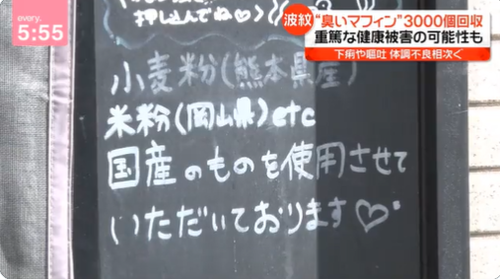 every.
5:55
波紋 “臭いマフィン”3000個回収
重篤な健康被害の可能性も
下痢や嘔吐 体調不良相次ぐ
押し込んでね♡
小麦粉(熊本県産)
米粉(岡山県)etc
国産のものを使用させて
いただいております♡